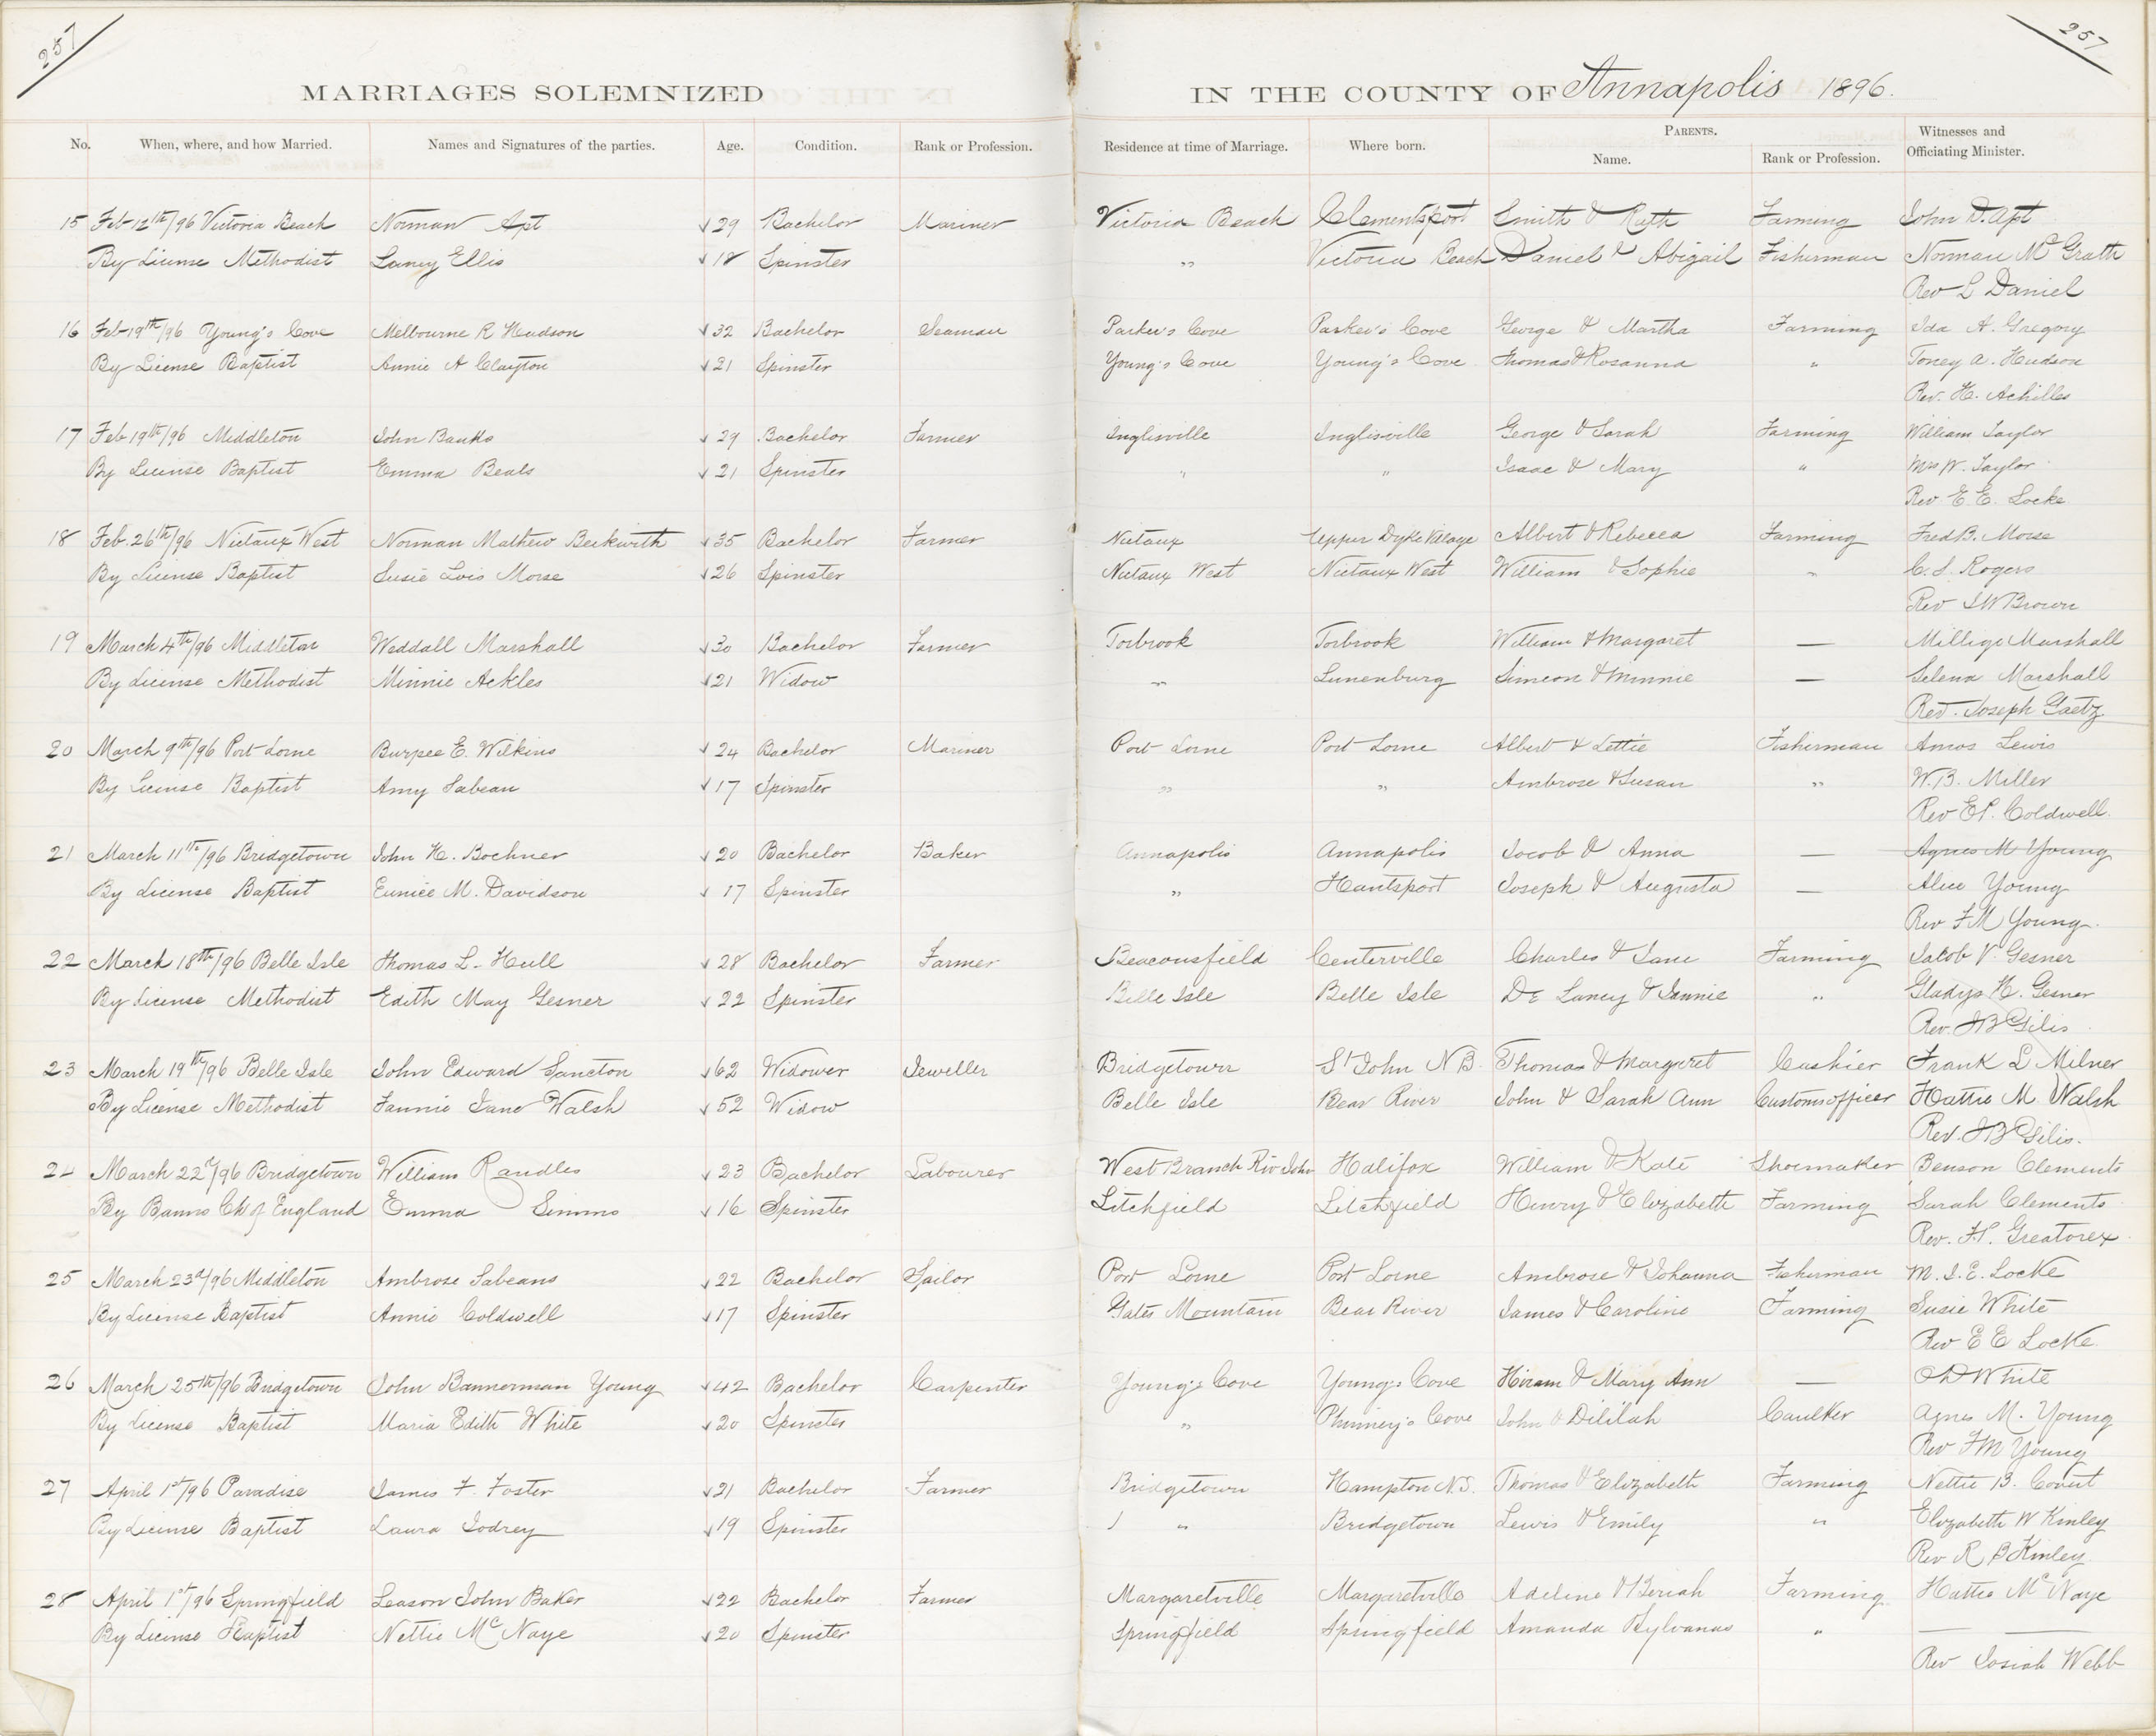 257
257
MARRIAGES SOLEMNIZED IN THE COUNTY OF Annapolis 1896.
No. When, where, and how Married. Names and Signatures of the parties. Age. Condition. Rank or Profession. Residence at time of Marriage. Where born. PARENTS. Name. Rank or Profession. Witnesses and Officiating Minister.
15 Feb 12th/96 Victoria Beach Norman Apt √29 Bachelor Mariner Victoria Beach Clementsport Smith & Ruth Farming John D. Apt
By License Methodist Laney Ellis √18 Spinster " Victoria Beach Daniel & Abigail Fisherman Norman McGrath
Rev L Daniel
16 Feb 19th/96 Young's Cove Melbourne R Hudson √32 Bachelor Seaman Parker's Cove Parker's Cove George & Martha Farming Ida A. Gregory
By License Baptist Annie A Clayton √21 Spinster Young's Cove Young's Cove Thomas & Rosanna " Toney A. Hudson
Rev. H. Achilles
17 Feb 19th/96 Middleton John Banks √29 Bachelor Farmer Inglisville Inglisville George & Sarah Farming William Taylor
By License Baptist Emma Beals √21 Spinster " " Isaac & Mary " Mrs W. Taylor
Rev E. E. Locke
18 Feb. 26th/96 Nictaux West Norman Mathew Beckwith √35 Bachelor Farmer Nictaux Upper Dyke Village Albert & Rebecca Farming Fred B. Morse
By License Baptist Susie Lois Morse √26 Spinster Nictaux West Nictaux West William & Sophie " C. S. Rogers
Rev J W Brown
19 March 4th/96 Middleton Weddall Marshall √30 Bachelor Farmer Torbrook Torbrook William & Margaret — Millige Marshall
By License Methodist Minnie Ackles √21 Widow " Lunenburg Simeon & Minnie — Selena Marshall
Rev. Joseph Gaetz
20 March 9th/96 Port Lorne Burpee E. Wilkins √24 Bachelor Mariner Port Lorne Port Lorne Albert & Lettie Fisherman Amos Lewis
By License Baptist Amy Sabean √17 Spinster " " Ambrose & Susan " W. B. Miller
Rev E P. Coldwell.
21 March 11th/96 Bridgetown John H. Bochner √20 Bachelor Baker Annapolis Annapolis Jacob & Anna — Agnes M Young
By License Baptist Eunice M. Davidson √17 Spinster " Hantsport Joseph & Augusta — Alice Young
Rev F M Young.
22 March 18th/96 Belle Isle Thomas L. Hull √28 Bachelor Farmer Beaconsfield Centerville Charles & Jane Farming Jacob V. Gesner
By License Methodist Edith May Gesner √22 Spinster Belle Isle Belle Isle De Lancy & Jannie " Gladys H. Gesner
Rev. J B Gilis
23 March 19th/96 Belle Isle John Edward Sancton √62 Widower Jeweller Bridgetown St John N B. Thomas & Margaret Cashier Frank L Milner
By License Methodist Fannie Jane Walsh √52 Widow Belle Isle Bear River John & Sarah Ann Customs officer Hattie M Walsh
Rev. J B Gilis.
24 March 22d/96 Bridgetown William Randles √23 Bachelor Labourer West Branch Riv John Halifax William & Kate Shoemaker Benson Clements
By Banns Ch of England Emma Simms √16 Spinster Litchfield Litchfield Henry & Elizabeth Farming Sarah Clements
Rev. F. P. Greatorex
25 March 23d/96 Middleton Ambrose Sabeans √22 Bachelor Sailor Port Lorne Port Lorne Ambrose & Johanna Fisherman M. I. E. Locke
By License Baptist Annie Coldwell √17 Spinster Gates Mountain Bear River James & Caroline Farming Susie White
Rev E E Locke
26 March 25th/96 Bridgetown John Bannerman Young √42 Bachelor Carpenter Young's Cove Young's Cove Hiram & Mary Ann — White
By License Baptist Maria Edith White √20 Spinster " Phinney's Cove John & Dililah Caulker Agnes M. Young
Rev F M Young
27 April 1st/96 Paradise James F. Foster √21 Bachelor Farmer Bridgetown Hampton N.S. Thomas & Elizabeth Farming Nettie B. Covert
By License Baptist Laura Jodrey √19 Spinster " Bridgetown Lewis & Emily " Elizabeth W Kinley
Rev R B Kinley.
28 April 1st/96 Springfield Leason John Baker √22 Bachelor Farmer Margaretville Margaretville Adeline & Beriah Farming Hattie McNaye
By License Baptist Nettie McNaye √20 Spinster Springfield Springfield Amanda & Sylvanus " — —
Rev Josiah Webb